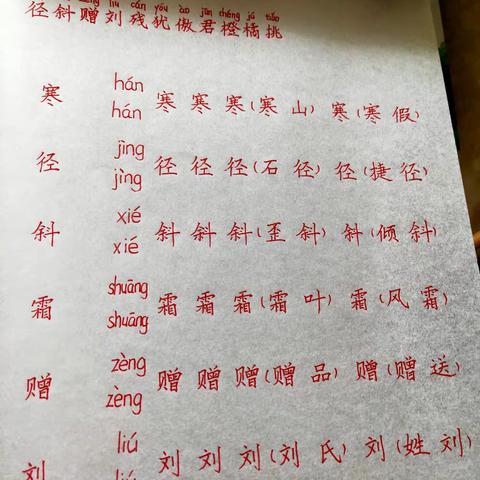 liú cán yóu ào jūn chéng jú tiāo
径斜赠刘残犹傲君橙橘挑
寒 hán 寒 寒 寒(寒 山) 寒(寒 假)
hán
径 jìng 径 径 径(石 径) 径(捷 径)
jìng
斜 xié 斜 斜 斜(歪 斜) 斜(倾 斜)
xié
霜 shuāng 霜 霜 霜(霜 叶) 霜(风 霜)
shuāng
赠 zèng 赠 赠 赠(赠 品) 赠(赠 送)
zèng
刘 liú 刘 刘 刘(刘 氏) 刘(姓 刘)
liú